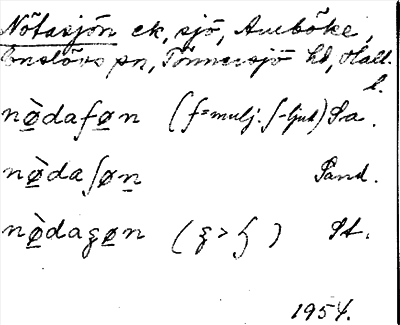 Nötasjön ek, sjö, Aneböke,
Enslövs sn, Tönnersjö hd, Hall.
l.
nø̀daføn (f=mulj. ʃ-ljud) Sa.
nø̀daʃøn Sand.
nø̀dagøn ( ) St.
1954.